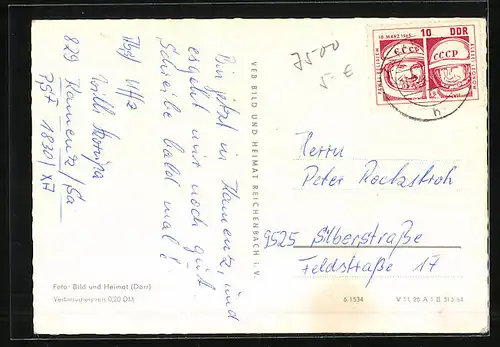 Bin jetzt in Kamenz, und
es geht mir noch gut.
Schreibe bald mal!
Abs. Uffz
Willi
829 Kamenz/Sa
PSF 1830/XH
VEB BILD UND HEIMAT REICHENBACH i. V.
7500
5 €
18. MÄRZ 1965
10 DDR
PAWEL BELJAJEW
CCCP
CCCP
ALEXEJ LEONOW
Herrn
Peter Rockstroh
9525 Silberstraße
Feldstraße 17
Foto: Bild und Heimat (Darr)
Verbraucherpreis 0,20 DM
6-1534
V 11 26 A 1 B 313 64